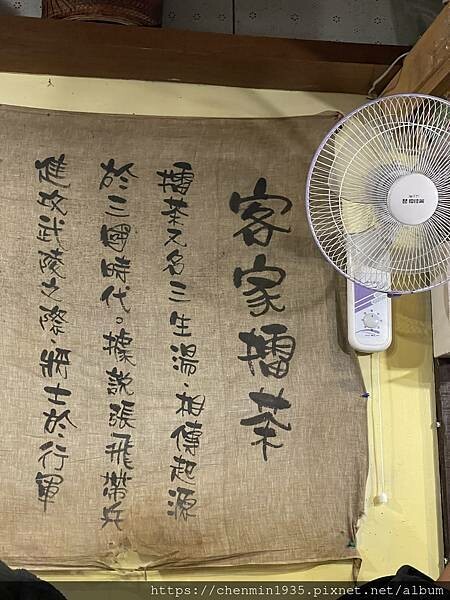 客家擂茶
擂茶又名三生湯,相傳起源
於三國時代。據說張飛帶兵
進攻武陵之際,將士於行軍
https://chenmin1935.pixnet.net/album